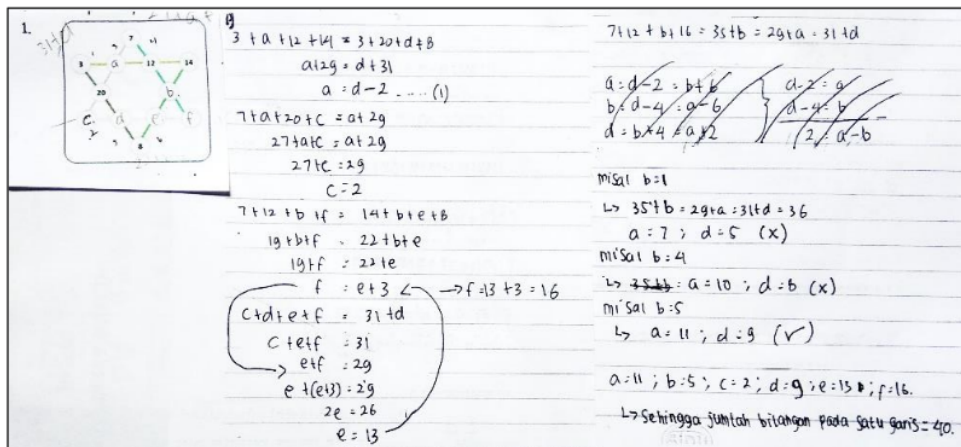 1.
31+d
7
3 a 12 14
20 b
c d e f
2
8
3 + a + 12 + 14 = 3 + 20 + d + 8
a + 29 = d + 31
a = d - 2 ..... (1)
7 + a + 20 + c = a + 29
27 + a + c = a + 29
27 + c = 29
c = 2
7 + 12 + b + f = 14 + b + e + 8
19 + b + f = 22 + b + e
19 + f = 22 + e
f = e + 3 → f = 13 + 3 = 16
c + d + e + f = 31 + d
c + e + f = 31
e + f = 29
e + (e+3) = 29
2e = 26
e = 13
7 + 12 + b + 16 = 35 + b = 29 + a = 31 + d
a = d - 2 = b + 6
b = d - 4 = a - 6
d = b + 4 = a + 2
d - 2 = a
d - 4 = b
2 = a - b
misal b = 1
↳ 35 + b = 29 + a = 31 + d = 36
a = 7 ; d = 5 (x)
misal b = 4
↳ 35+b = a = 10 ; d = 8 (x)
misal b = 5
↳ a = 11 ; d = 9 (✓)
a = 11 ; b = 5 ; c = 2 ; d = 9 ; e = 13 ; f = 16.
↳ Sehingga jumlah bilangan pada satu garis = 40.